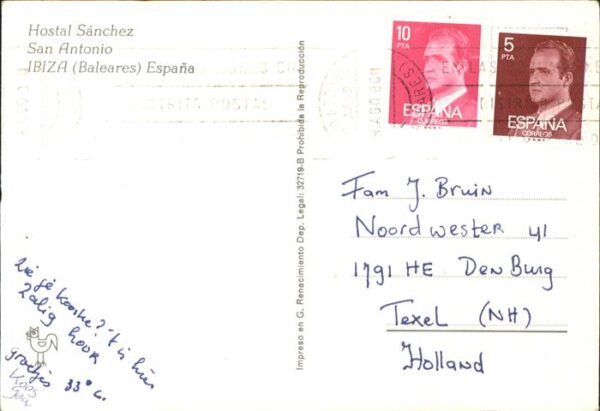 Hostal Sánchez
San Antonio
IBIZA (Baleares) España
10
PTA
ESPAÑA
CORREOS
5
PTA
ESPAÑA
CORREOS
DISTRITO POSTAL
Impreso en G. Renacimiento Dep. Legal: 32719-B Prohibida la Reproducción
Fam J. Bruin
Noordwester 41
1791 HE Den Burg
Texel (NH)
Holland
Zie je kooske? 't is hier
Zalig hoor
groetjes 33° c.
Koos